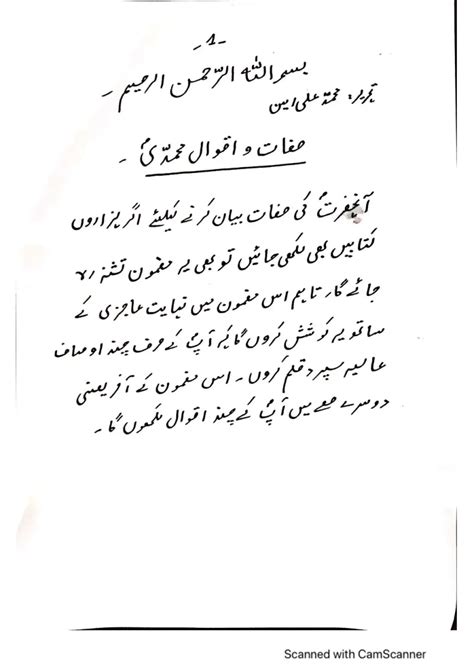 -1-
بسم اللہ الرّحمٰن الرحیم ۔
تحریر: محمّد علی امین
صفات و اقوال محمدیؐ ۔
آنحضرتؐ کی صفات بیان کرنے کیلئے اگر ہزاروں
کتابیں بھی لکھی جائیں تو بھی یہ مضمون تشنہ رہ
جائے گا، تاہم اس مضمون میں نہایت عاجزی کے
ساتھ یہ کوشش کروں گا کہ آپؐ کے صرف چند اوصاف
عالیہ سپرد قلم کروں ۔ اس مضمون کے آخر یعنی
دوسرے حصے میں آپؐ کے چند اقوال لکھوں گا ۔
Scanned with CamScanner